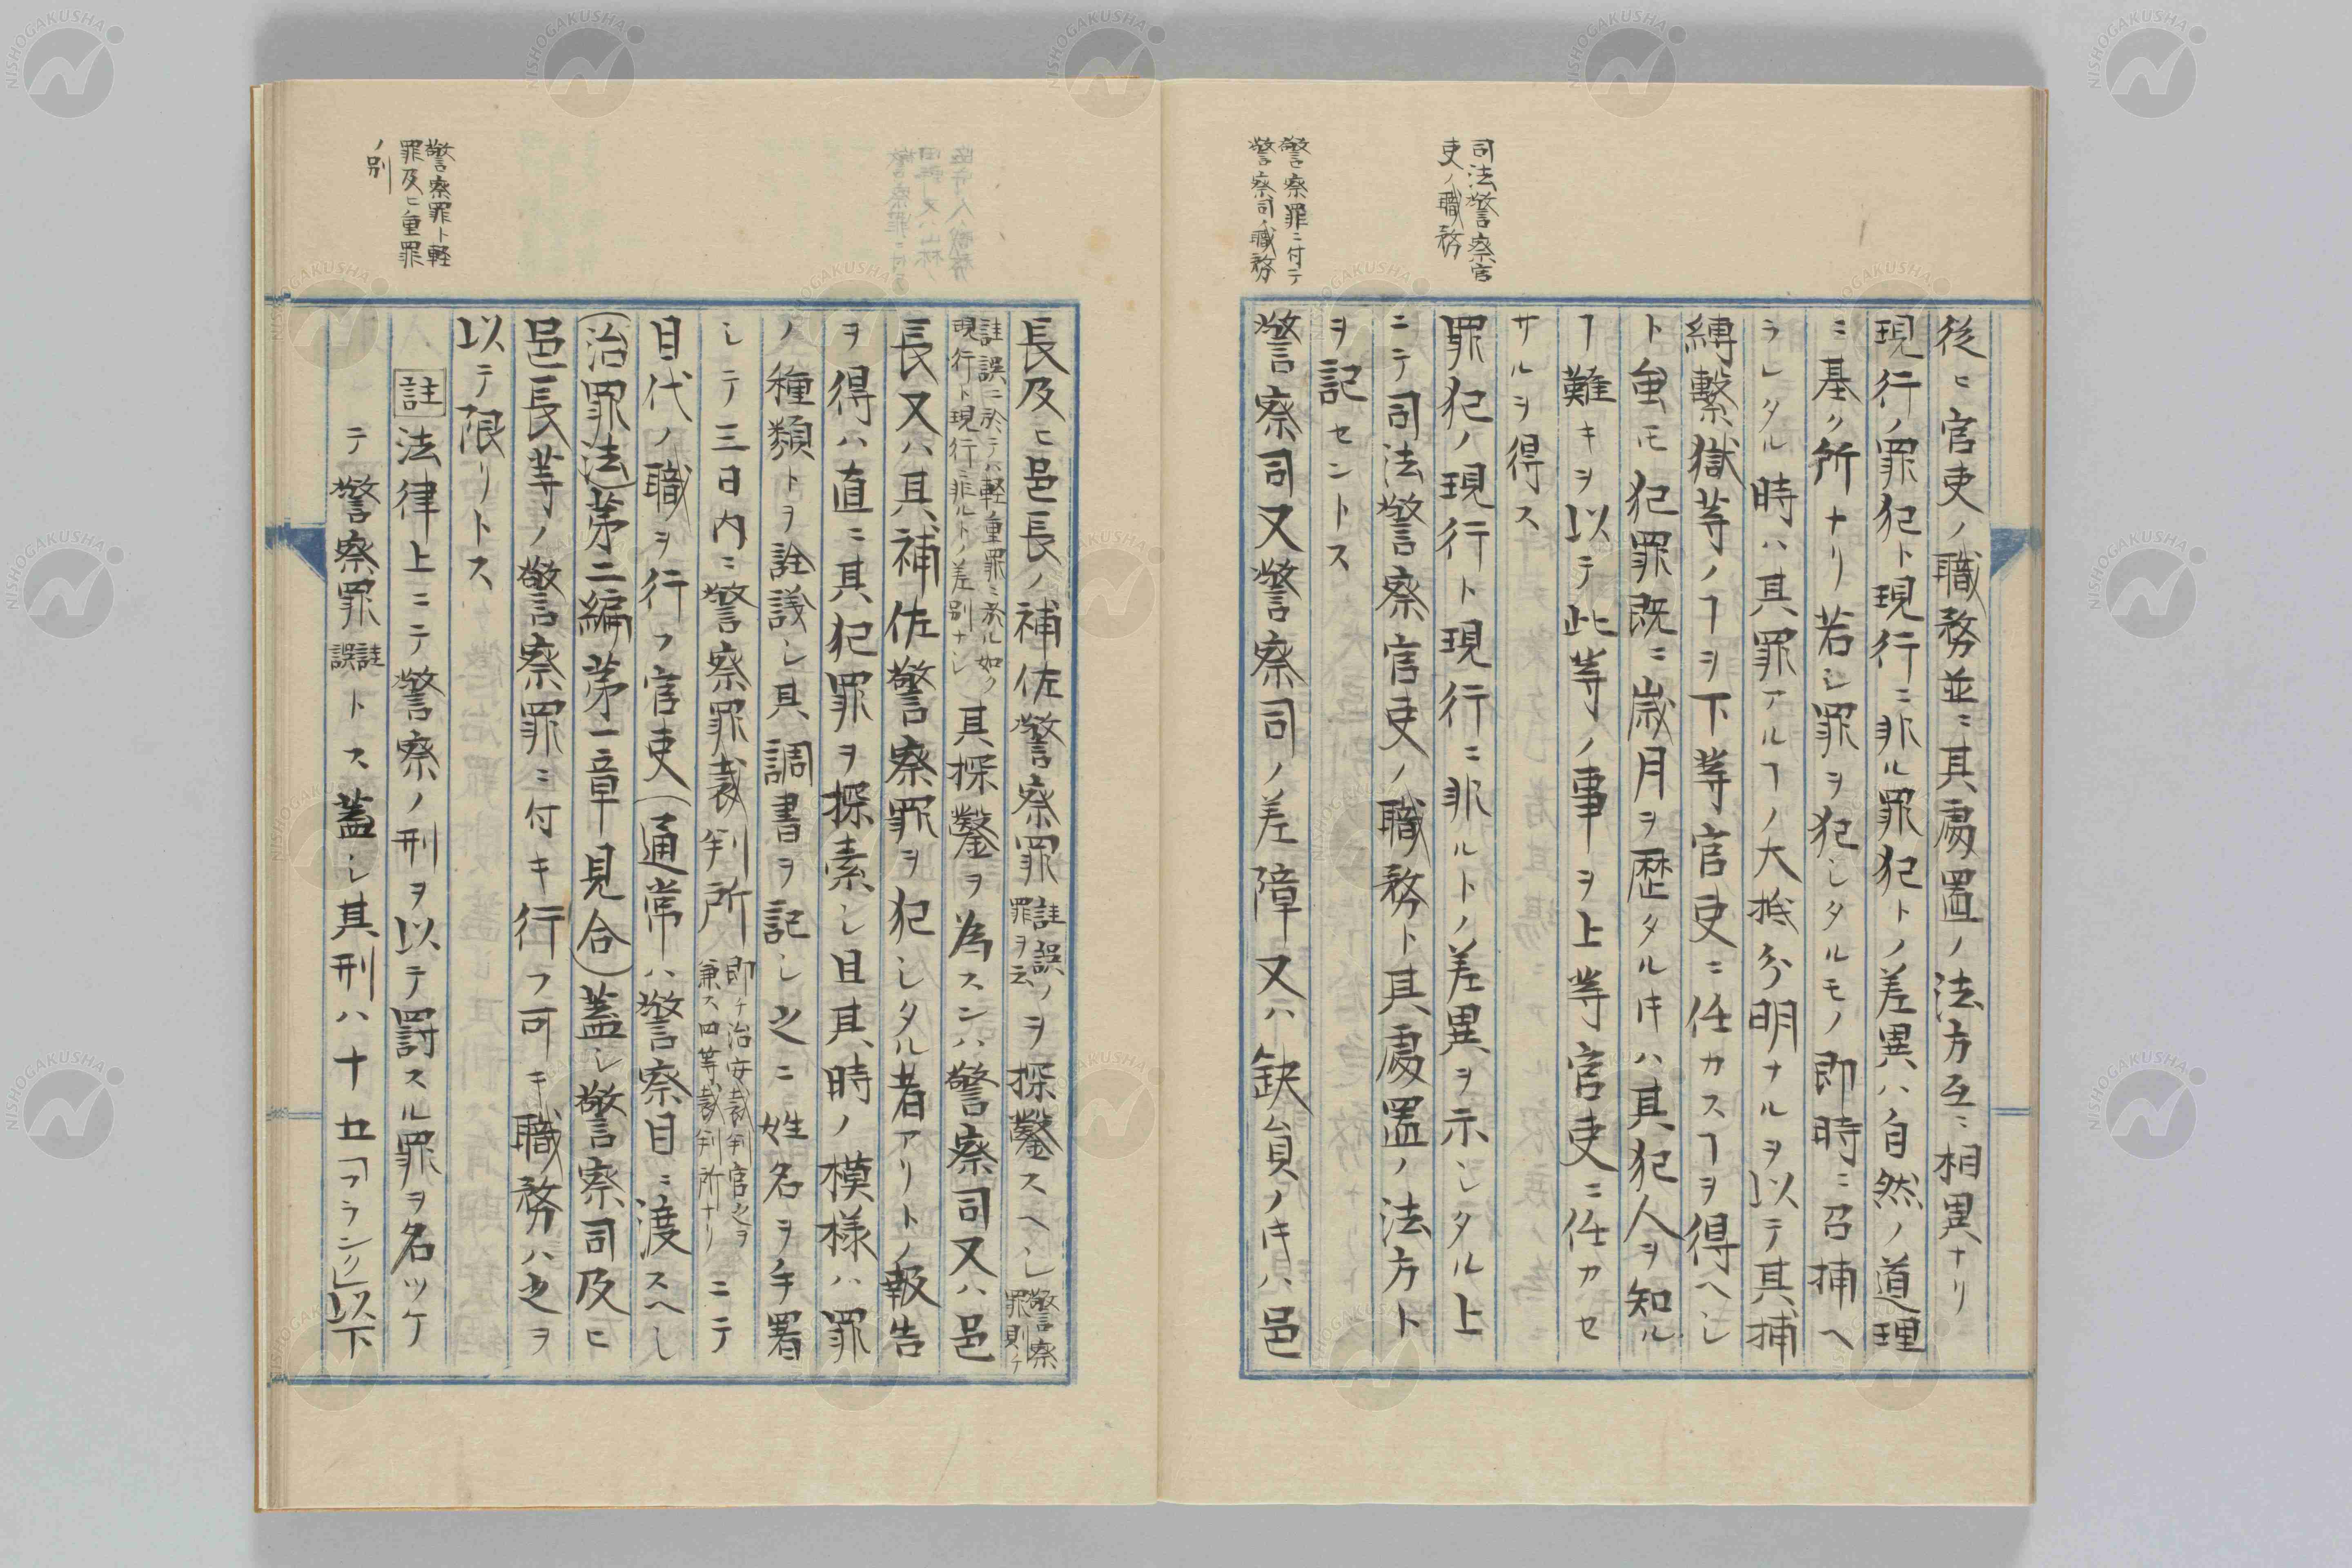 司法警察官
吏ノ職務
警察罪ニ付テ
警察司ノ職務
従ヒ官吏ノ職務並ニ其處置ノ法方互ニ相異ナリ
現行ノ罪犯ト現行ニ非ル罪犯トノ差異ハ自然ノ道理
ニ基ク所ナリ若シ罪ヲ犯シタルモノ即時ニ召捕ヘ
ラレタル時ハ其罪アルヿノ大抵分明ナルヲ以テ其捕
縛繋獄等ノヿヲ下等官吏ニ任カスヿヲ得ヘシ
ト虽モ犯罪既ニ歳月ヲ歴タルキハ其犯人ヲ知ル
ヿ難キヲ以テ此等ノ事ヲ上等官吏ニ任カセ
サルヲ得ス
罪犯ノ現行ト現行ニ非ルトノ差異ヲ示シタル上
ニテ司法警察官吏ノ職務ト其處置ノ法方ト
ヲ記セントス
警察司又警察司ノ差障又ハ缺員ノキハ邑
長及ヒ邑長ノ補佐警察罪註誤ノ罪ヲ云ヲ探鑿スヘシ警察罪則チ
註誤ニ於テハ軽重罪ニ於ル如ク現行ト現行ニ非ルトノ差別ナシ其探鑿ヲ為スンハ警察司又ハ邑
長又ハ其補佐警察罪ヲ犯シタル者アリトノ報告
ヲ得ハ直ニ其犯罪ヲ探索シ且其時ノ模様ハ罪
ノ種類トヲ詮議シ其調書ヲ記シ之ニ姓名ヲ手署
シテ三日内ニ警察罪裁判所即チ治安裁判官之ヲ兼ス四等裁判所ナリニテ
目代ノ職ヲ行フ官吏(通常ハ警察目ニ渡スヘシ
(治罪法)第二編第一章見合)蓋シ警察司及ヒ
邑長等ノ警察罪ニ付キ行フ可キ職務ハ之ヲ
以テ限リトス
註法律上ニテ警察ノ刑ヲ以テ罰スル罪ヲ名ツケ
テ警察罪註誤トス蓋シ其刑ハ十五「フランク」以下
警察罪ト軽
罪及ヒ重罪
ノ別